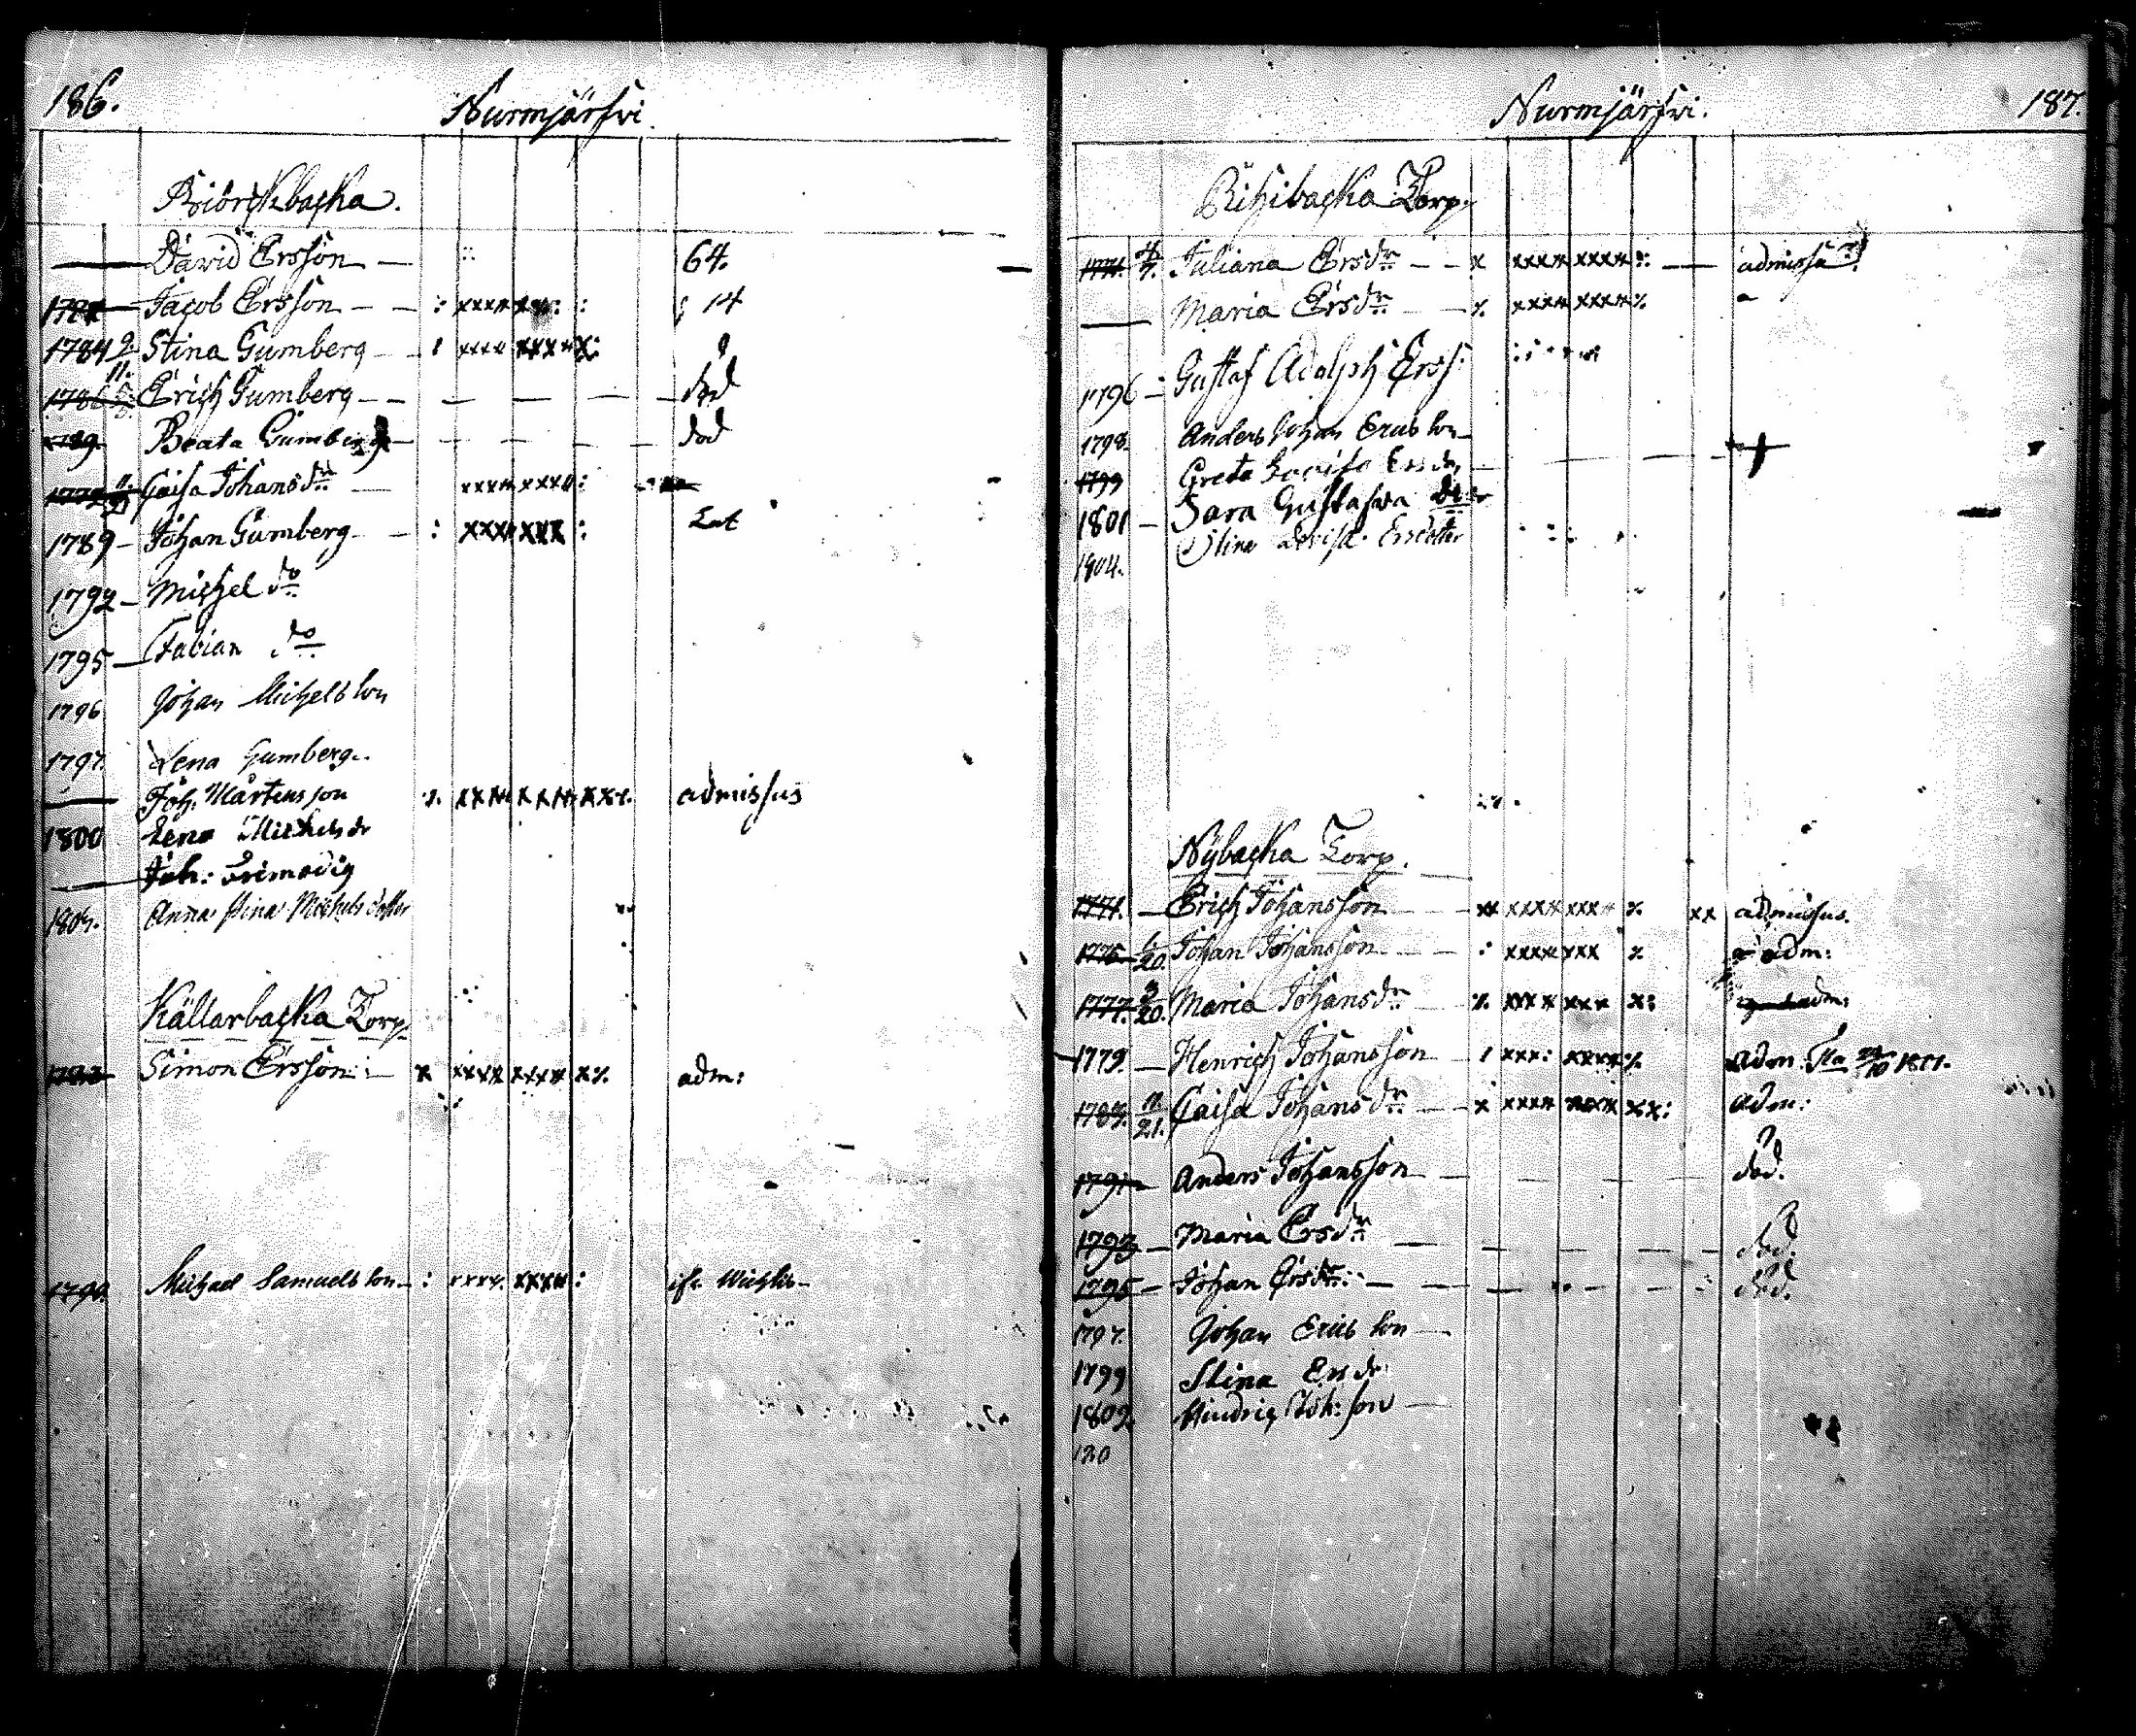 186.
Nurmjärfvi.
Biörckbacka.
David Ersson — 64.
Jacob Ersson — : xxxx : 14
1784 9/11. Stina Gumberg xxxx xxxx
Erich Gumberg — död
Beata Gumberg — död
Caisa Johansdr — xxxx xxxx:
1789 — Johan Gumberg — : xxxx xxx :
1792 — Michel do
1795 — Fabian do
1796 Johan Michelsson
1797. Lena Gumberg
— Joh: Mårtensson admissus
1800 Lena Michelsdr
Joh: Frimodig
Anna Stina Michelsdotter
Källarbacka Torp.
Simon Ersson: — x xxxx xxxx x adm:
Michael Samuelsson — : xxxx xxxx :
Nurmjärfvi.
187.
Torp.
Juliana Ersdr — x xxxx xxxx admissa
— Maria Ersdr — xxxx xxxx
1796 — Gustaf Adolph Erss:
1798. Anders Johan Ericsson
1799 Greta Lovisa Ersdr +
1801 — Sara Gustafva
1804. Stina Lovisa Ersdotter
Nybacka Torp.
1774. — Erich Johansson — xx xxxx xxx xx admissus.
1775 1/20. Johan Johansson — : xxxx xxx adm:
1777. 3/20. Maria Johansdr xxxx xxx x: adm:
1779. — Henrich Johansson xxx: xxxx adm. 1801.
11/21. Caisa Johansdr — x xxxx xxxx xx: adm:
1791 — Anders Johansson — död.
1793 — Maria Ersdr — död.
1795 — Johan — död.
1797. Johan Ericsson —
1799 Stina Ersdr
Hindric Joh:son —